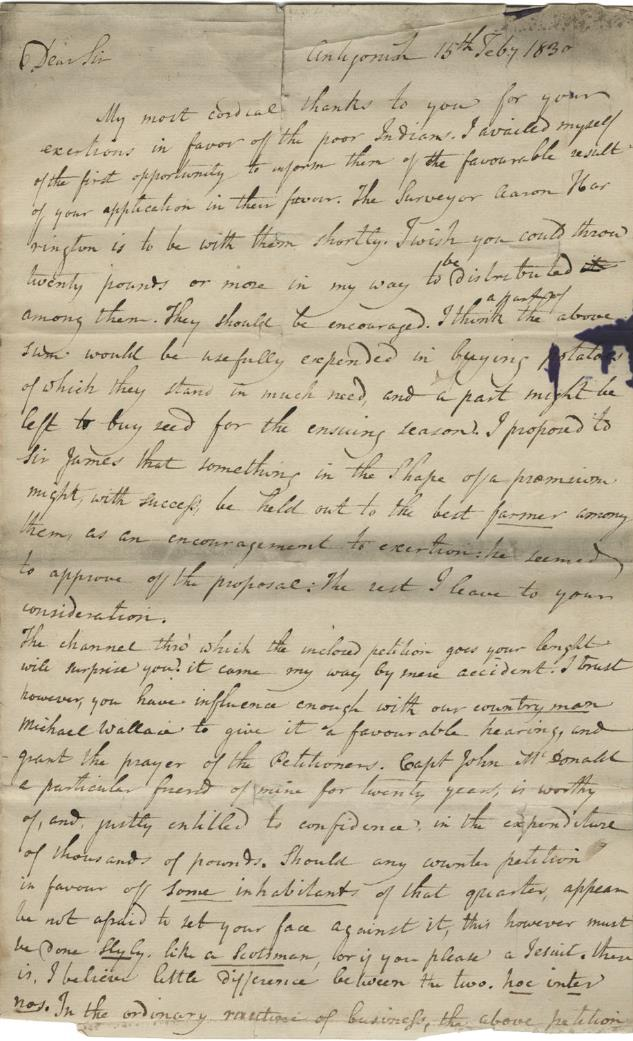 Dear Sir Antigonish 15th Feby 1830
My most cordial thanks to you for your
exertions in favor of the poor Indians. I availed myself
of the first opportunity to inform them of the favourable result
of your application in their favour. The Surveyor Aaron Har
rington is to be with them shortly. I wish you could throw
twenty pounds or more in my way to be distributed
among them. They should be encouraged. I think a part of the above
sum would be usefully expended in buying potatoes
of which they stand in much need, and a part might be
left to buy seed for the ensuing season. I proposed to
Sir James that something in the Shape of a premium
might, with success, be held out to the best farmer among
them, as an encouragement to exertion: he seemed
to approve of the proposal: The rest I leave to your
consideration.
The channel thro' which the inclosed petition goes your lenght
will surprise you: it came my way by mere accident. I trust
however, you have influence enough with our country man
Michael Wallace to give it a favourable hearing, and
grant the prayer of the Petitioners. Capt John McDonald
a particular friend of mine for twenty years, is worthy
of, and justly entitled to confidence, in the expenditure
of thousands of pounds. Should any counter petition
in favour of some inhabitants of that quarter, appear
be not afraid to set your face against it, this however must
be done slyly. like a Scotsman, or if you please a Jesuit. there
is, I believe little difference between the two. hoc inter
nos. In the ordinary routine of business, the above petition